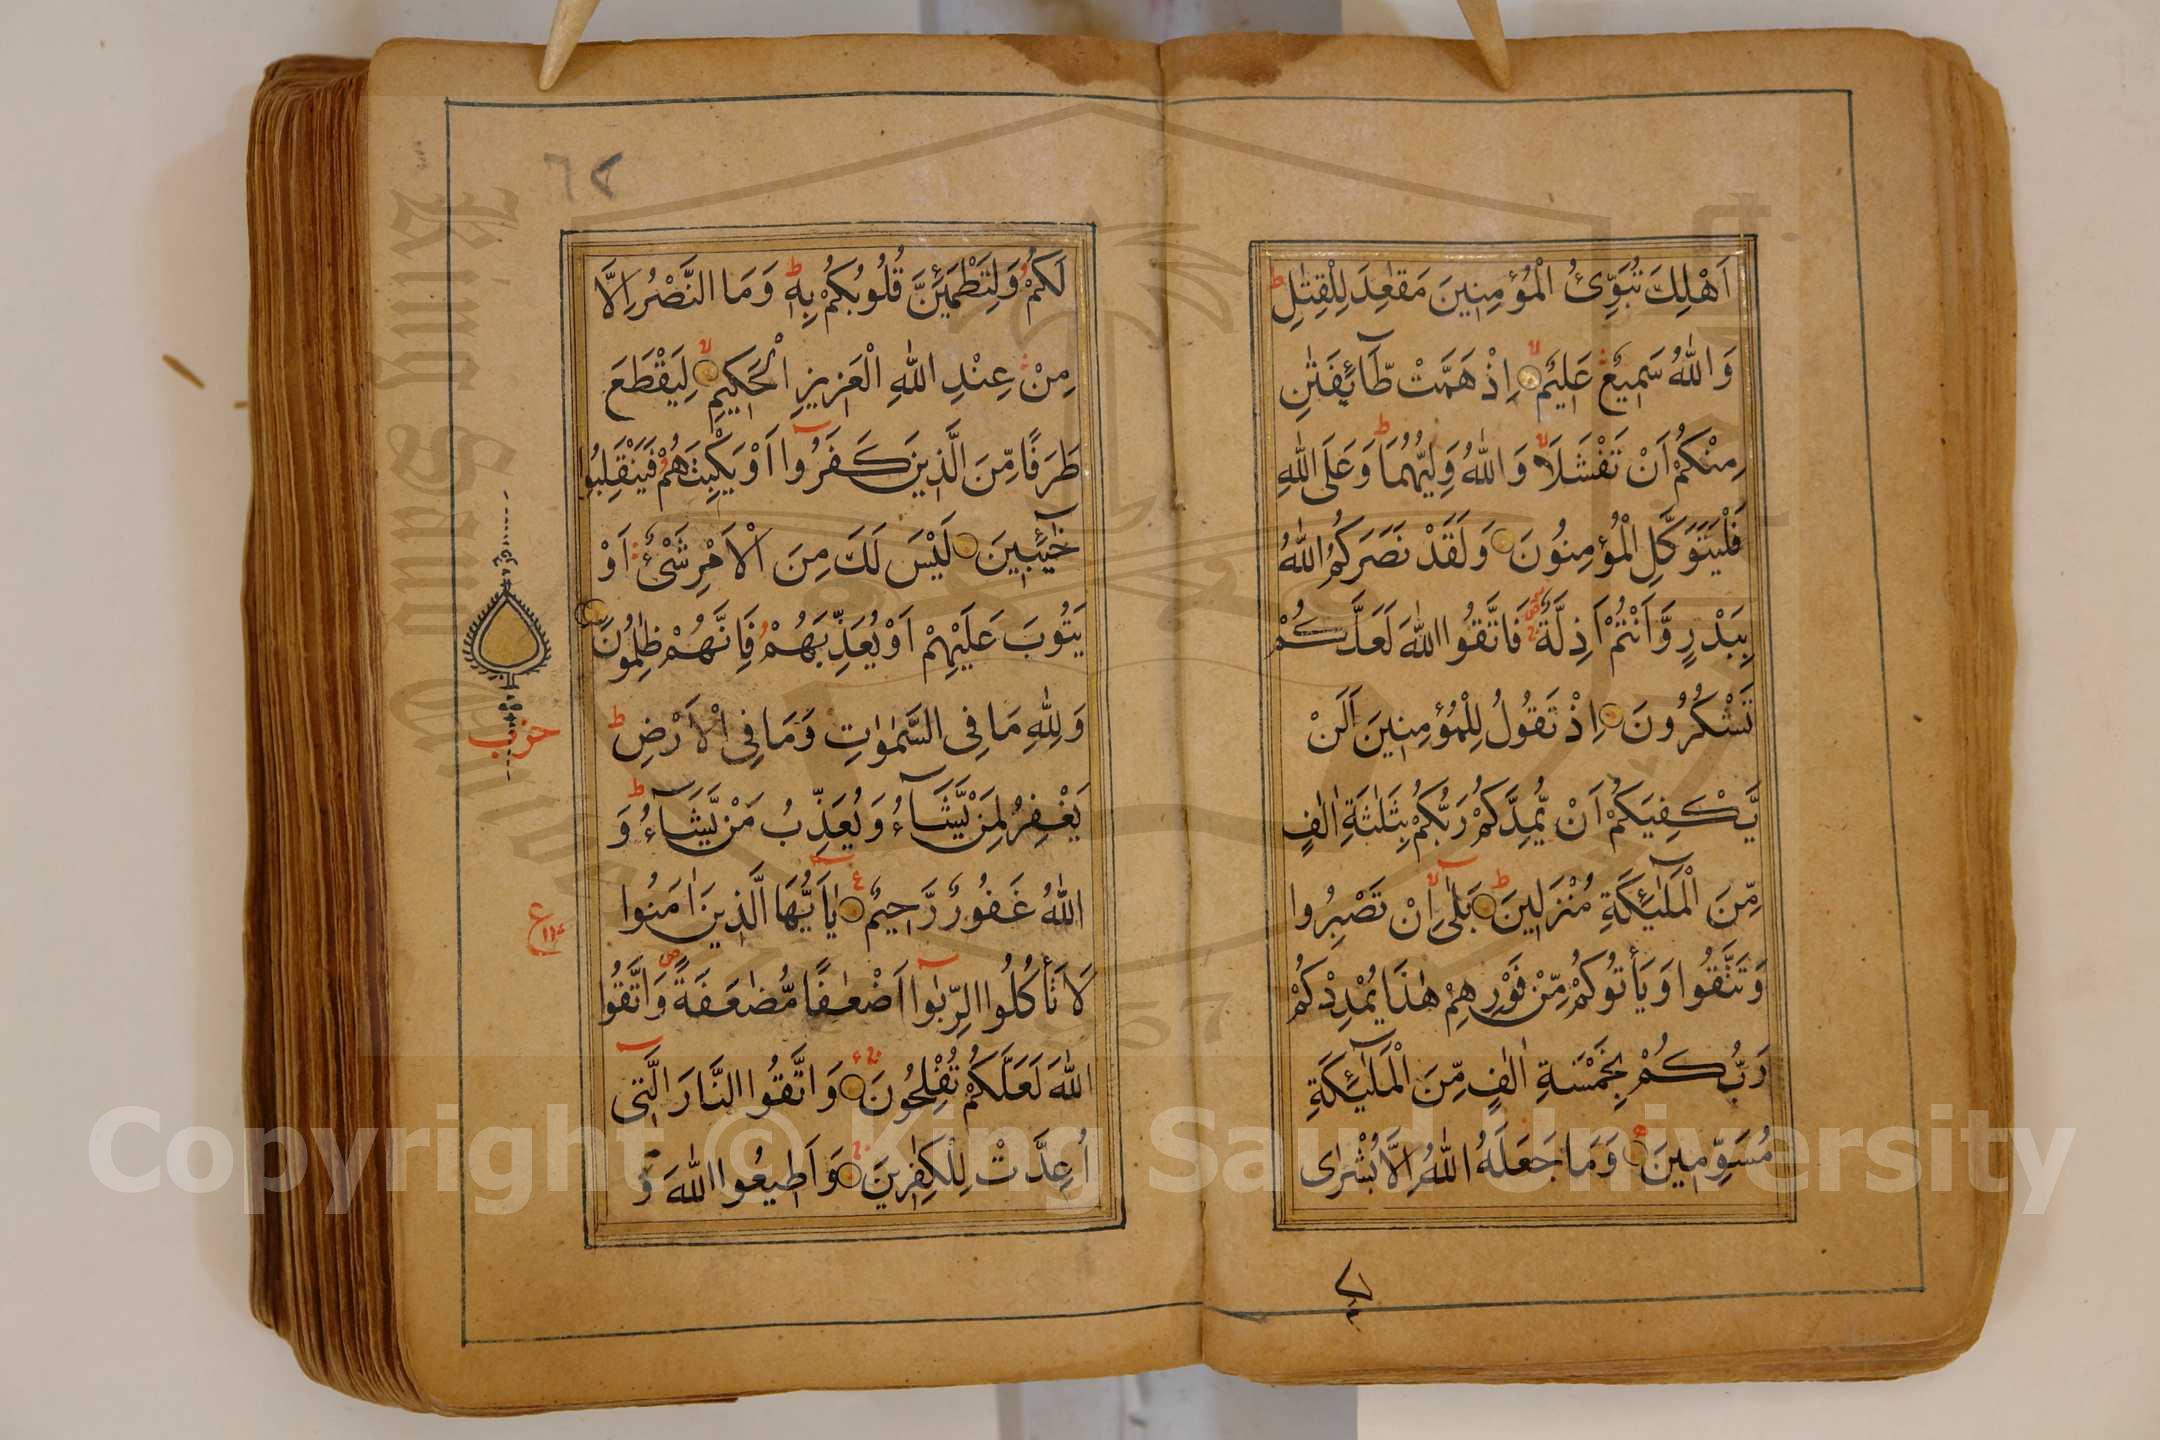 اَهْلِكَ تُبَوِّئُ الْمُؤْمِنِيْنَ مَقٰعِدَ لِلْقِتٰلِ ط
وَاللّٰهُ سَمِيْعٌ عَلِيْمٌ لا اِذْ هَمَّتْ طَّآئِفَتٰنِ
مِنْكُمْ اَنْ تَفْشَلَا لا وَاللّٰهُ وَلِيُّهُمَا ط وَعَلَى اللّٰهِ
فَلْيَتَوَكَّلِ الْمُؤْمِنُوْنَ وَلَقَدْ نَصَرَكُمُ اللّٰهُ
بِبَدْرٍ وَّاَنْتُمْ اَذِلَّةٌ فَاتَّقُوا اللّٰهَ لَعَلَّكُمْ
تَشْكُرُوْنَ اِذْ تَقُوْلُ لِلْمُؤْمِنِيْنَ اَلَنْ
يَّكْفِيَكُمْ اَنْ يُّمِدَّكُمْ رَبُّكُمْ بِثَلٰثَةِ اٰلٰفٍ
مِّنَ الْمَلٰٓئِكَةِ مُنْزَلِيْنَ ط بَلٰٓى لا اِنْ تَصْبِرُوْا
وَتَتَّقُوْا وَيَاْتُوْكُمْ مِّنْ فَوْرِهِمْ هٰذَا يُمْدِدْكُمْ
رَبُّكُمْ بِخَمْسَةِ اٰلٰفٍ مِّنَ الْمَلٰٓئِكَةِ
مُسَوِّمِيْنَ وَمَا جَعَلَهُ اللّٰهُ اِلَّا بُشْرٰى
لكم
٦٢
لَكُمْ وَلِتَطْمَئِنَّ قُلُوْبُكُمْ بِهٖ ط وَمَا النَّصْرُ اِلَّا
مِنْ عِنْدِ اللّٰهِ الْعَزِيْزِ الْحَكِيْمِ لا لِيَقْطَعَ
طَرَفًا مِّنَ الَّذِيْنَ كَفَرُوْٓا اَوْ يَكْبِتَهُمْ فَيَنْقَلِبُوْا
خَآئِبِيْنَ لَيْسَ لَكَ مِنَ الْاَمْرِ شَيْءٌ اَوْ
يَتُوْبَ عَلَيْهِمْ اَوْ يُعَذِّبَهُمْ فَاِنَّهُمْ ظٰلِمُوْنَ
وَلِلّٰهِ مَا فِى السَّمٰوٰتِ وَمَا فِى الْاَرْضِ ط
حزب
يَغْفِرُ لِمَنْ يَّشَآءُ وَيُعَذِّبُ مَنْ يَّشَآءُ ط وَ
اللّٰهُ غَفُوْرٌ رَّحِيْمٌ ع يٰٓاَيُّهَا الَّذِيْنَ اٰمَنُوْا
ع
لَا تَاْكُلُوا الرِّبٰوٓا اَضْعٰفًا مُّضٰعَفَةً ص وَاتَّقُوا
اللّٰهَ لَعَلَّكُمْ تُفْلِحُوْنَ وَاتَّقُوا النَّارَ الَّتِىْٓ
اُعِدَّتْ لِلْكٰفِرِيْنَ وَاَطِيْعُوا اللّٰهَ وَ
King Saud University
1957
Copyright © King Saud University